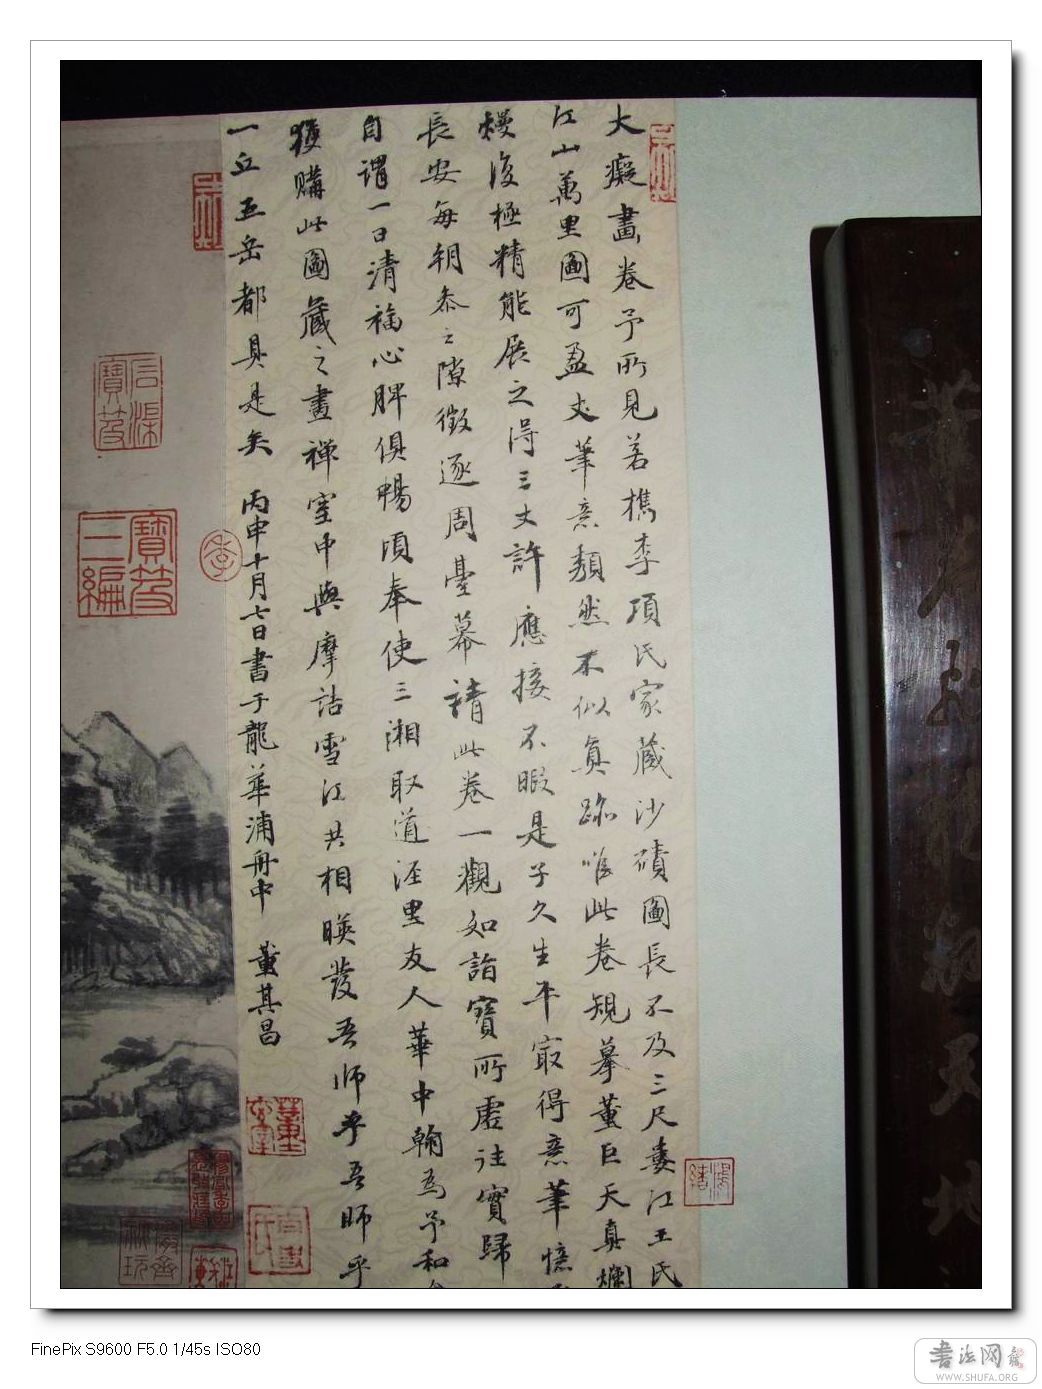 大癡畫卷予所見若檇李項氏家藏沙磧圖長不及三尺婁江王氏
江山萬里圖可盈丈筆意頹然不似真跡唯此卷規摹董巨天真爛
熳復極精能展之得三丈許應接不暇是子久生平最得意筆憶
長安每朝參之隙徵逐周臺幕請此卷一觀如詣寶所虛往實歸
自謂一日清福心脾俱暢頃奉使三湘取道涇里友人華中翰為予和
獲購此圖藏之畫禪室中與摩詰雪江共相暎發吾師乎吾師乎
一丘五岳都具是矣 丙申十月七日書于龍華浦舟中 董其昌
寶笈三編
FinePix S9600 F5.0 1/45s ISO80
書法网
WWW.SHUFA.ORG